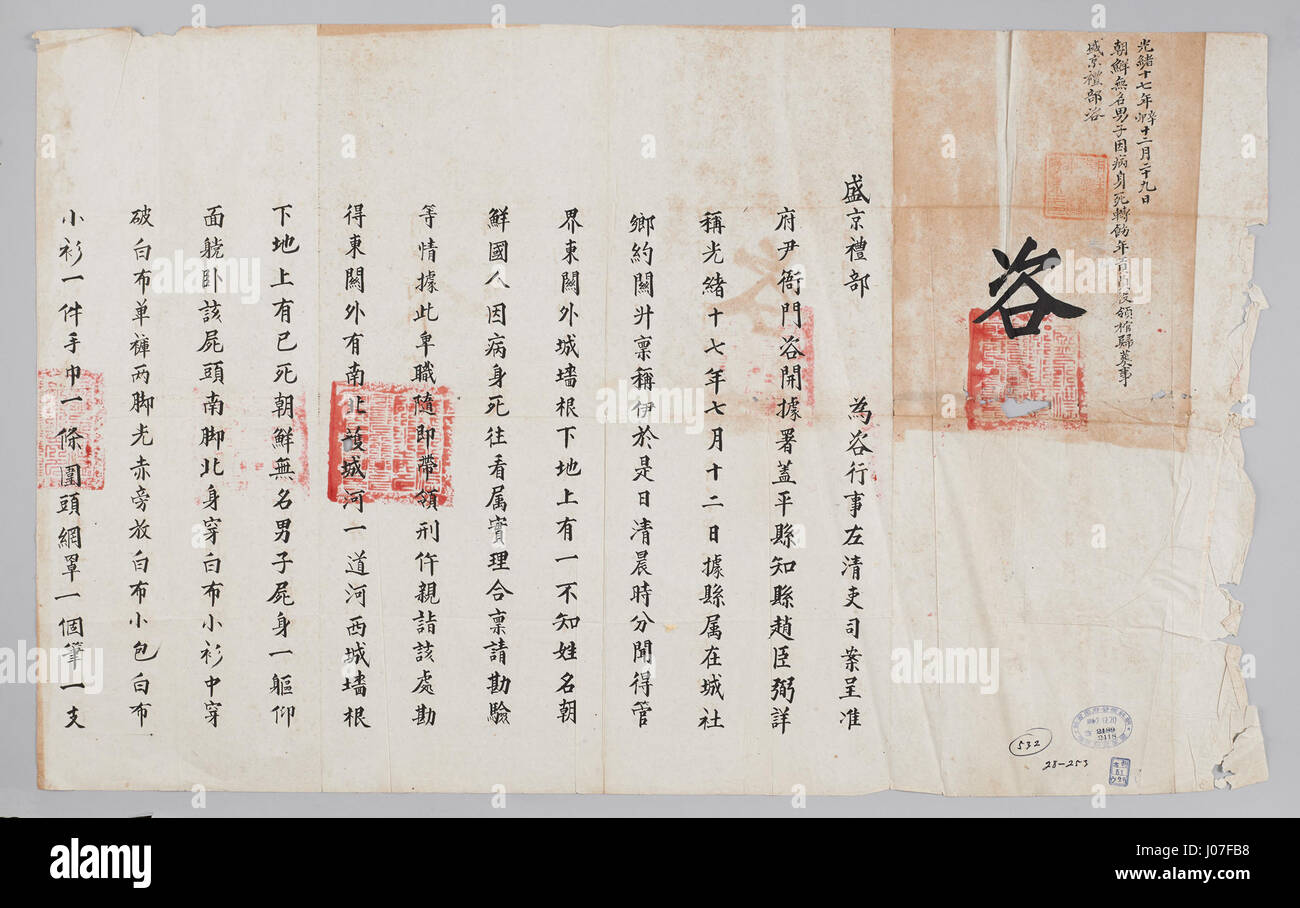 光緒十七年辛卯十二月二十九日
朝鮮無名男子因病身死轉飭年貢員役領棺歸葬事
盛京禮部咨
咨
盛京禮部 為咨行事左清吏司案呈准
府尹衙門咨開據署蓋平縣知縣趙臣弼詳
稱光緒十七年七月十二日據縣属在城社
鄉約關升稟稱伊於是日清晨時分聞得管
界東關外城墻根下地上有一不知姓名朝
鮮國人因病身死往看属實理合稟請勘驗
等情據此卑職隨即帶領刑仵親詣該處勘
得東關外有南北護城河一道河西城墻根
下地上有已死朝鮮無名男子屍身一軀仰
面躺卧該屍頭南脚北身穿白布小衫中穿
破白布單褲两脚光赤旁放白布小包白布
小衫一件手巾一條圍頭網罩一個筆一支
2489
2118
532
28-253
alamy
a
alamy
Image ID: J07FB8
www.alamy.com